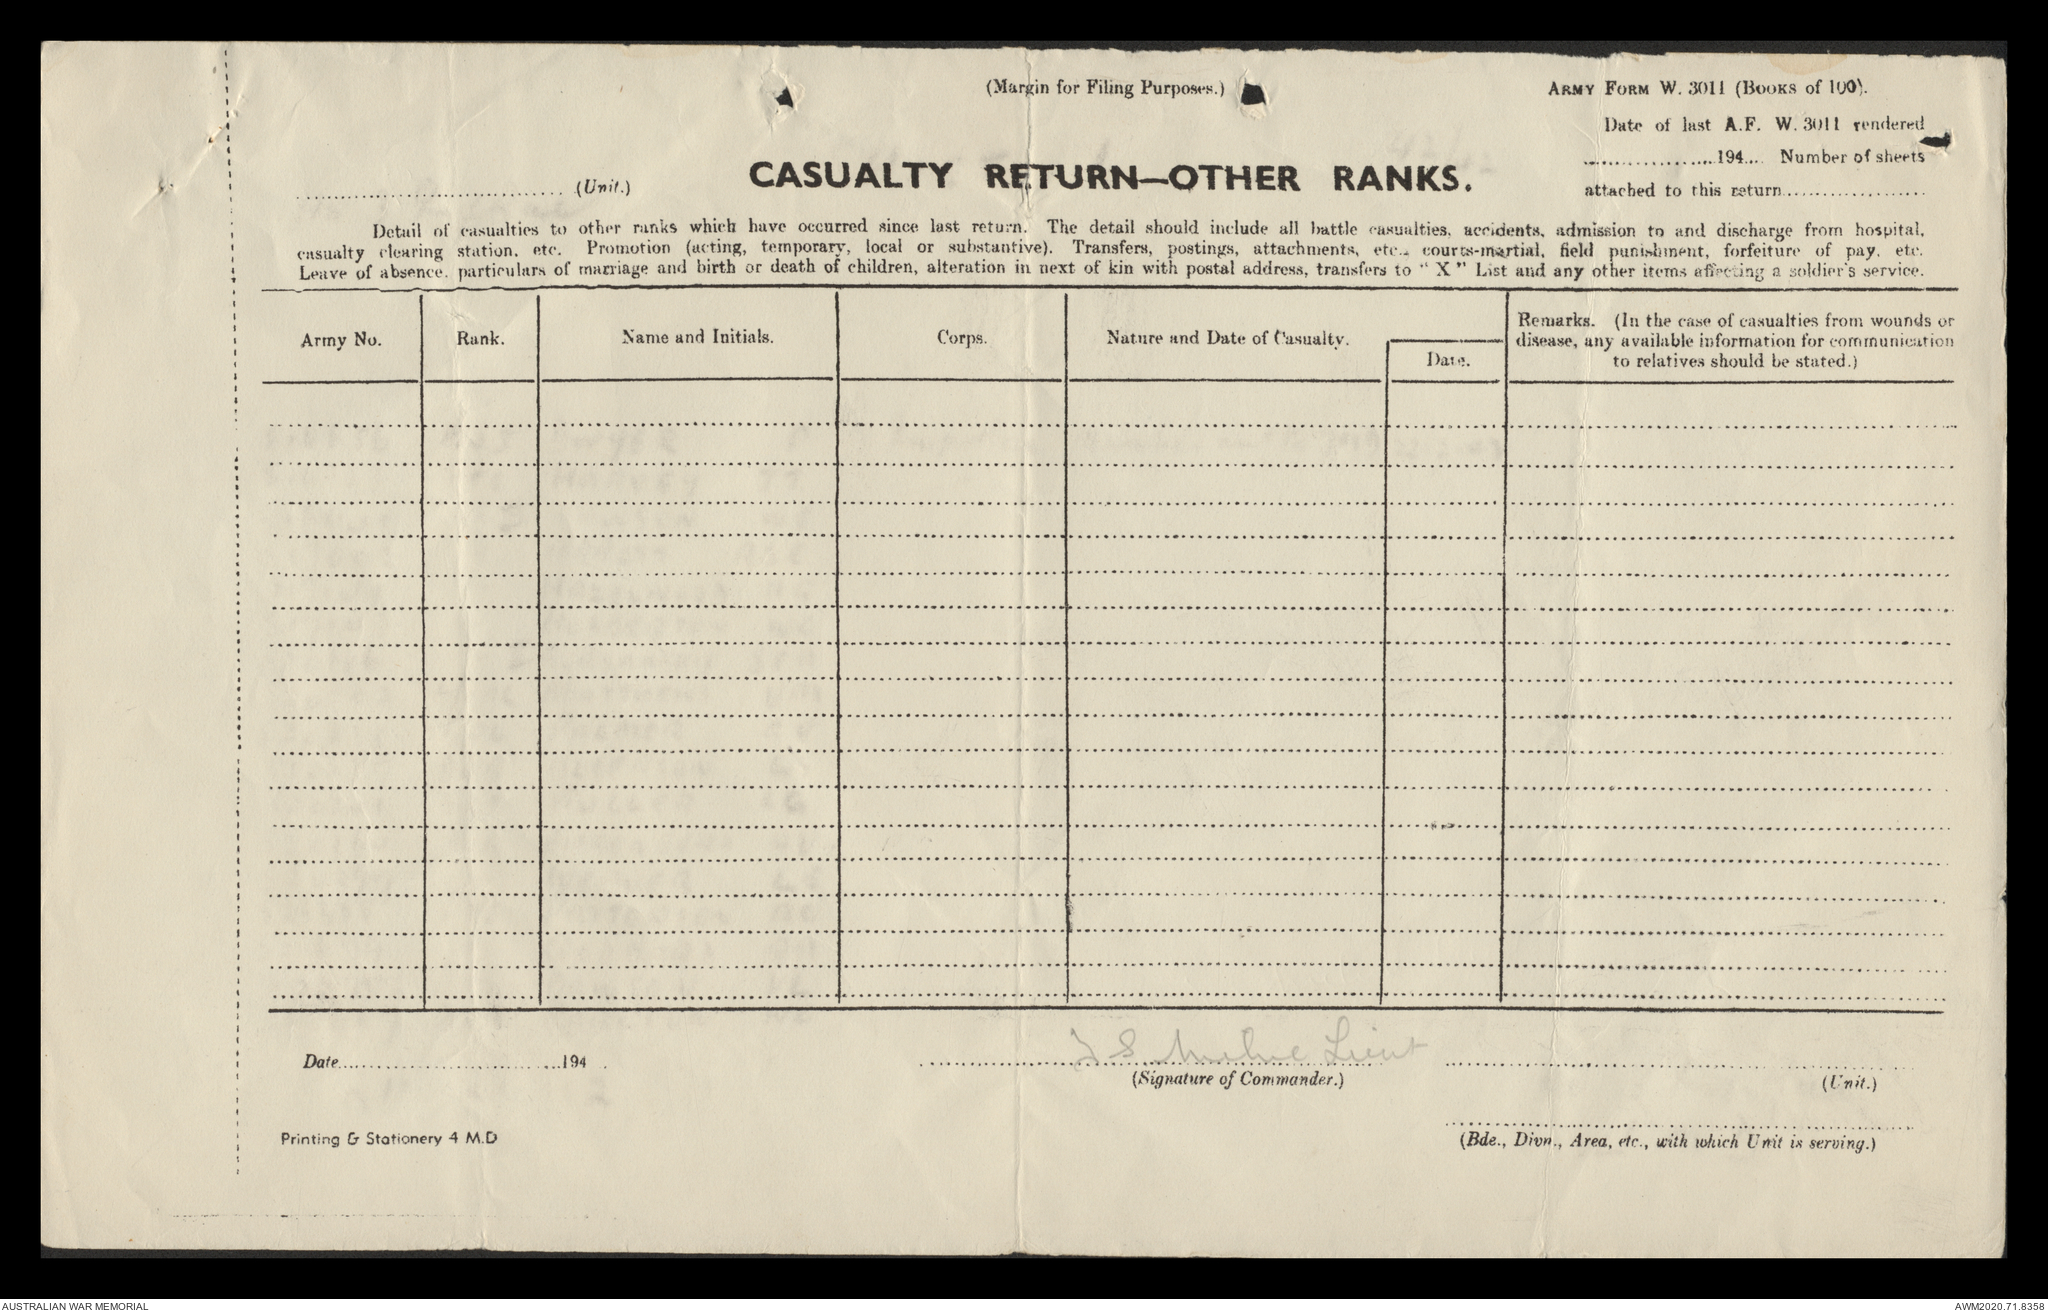 (Margin for Filing Purposes.)
ARMY FORM W. 3011 (BOOKS of 100).
Date of last A.F. W. 3011 rendered
..................194.... Number of sheets
attached to this return....................
.................................. (Unit.)
CASUALTY RETURN—OTHER RANKS.
Detail of casualties to other ranks which have occurred since last return. The detail should include all battle casualties, accidents, admission to and discharge from hospital,
casualty clearing station, etc. Promotion (acting, temporary, local or substantive). Transfers, postings, attachments, etc., courts-martial, field punishment, forfeiture of pay, etc.
Leave of absence, particulars of marriage and birth or death of children, alteration in next of kin with postal address, transfers to "X" List and any other items affecting a soldier's service.
Army No.
Rank.
Name and Initials.
Corps.
Nature and Date of Casualty.
Date.
Remarks. (In the case of casualties from wounds or
disease, any available information for communication
to relatives should be stated.)
Date..............................194 .
Lieut
(Signature of Commander.)
(Unit.)
(Bde., Divn., Area, etc., with which Unit is serving.)
Printing & Stationery 4 M.D
AUSTRALIAN WAR MEMORIAL
AWM2020.71.8358